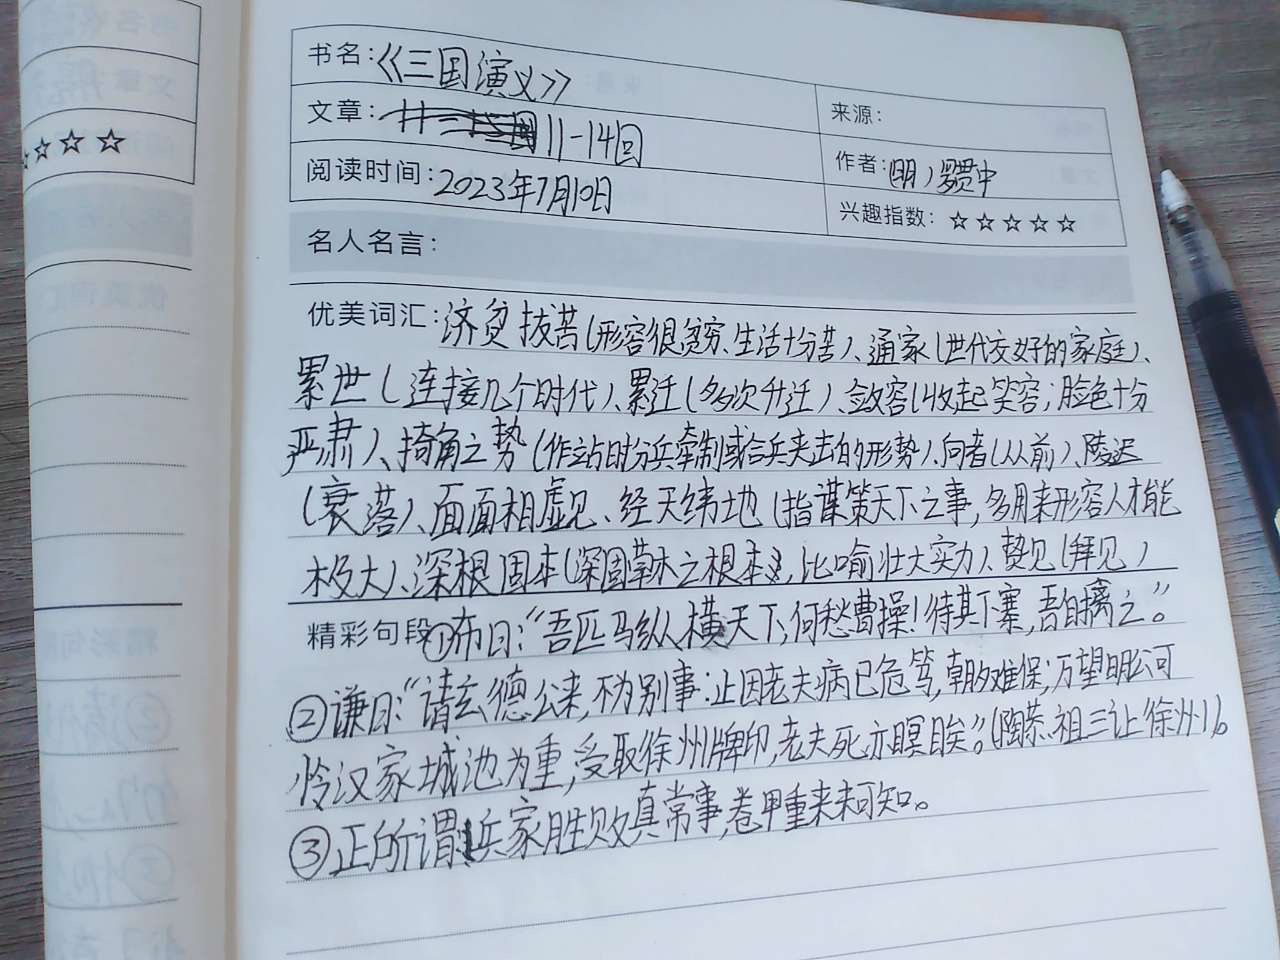 书名:《三国演义》
文章: 11-14回
来源:
阅读时间:2023年7月10日
作者:(明)罗贯中
兴趣指数: ☆☆☆☆☆
名人名言:
优美词汇:济贫拔苦(形容很贫穷、生活十分苦)、通家(世代交好的家庭)、
累世(连接几个时代)、累迁(多次升迁)、敛容(收起笑容;脸色十分
严肃)、掎角之势(作战时分兵牵制或合兵夹击的形势)、向者(从前)、陵迟
(衰落)、面面相虚见、经天纬地(指谋策天下之事,多用来形容人才能
极大)、深根固本(深固草木之根本,比喻壮大实力)、贽见(拜见)
精彩句段①布曰:“吾匹马纵横天下,何愁曹操!待其下寨,吾自擒之。”
②谦曰:“请玄德公来,不为别事:止因老夫病已危笃,朝夕难保;万望明公可
怜汉家城池为重,受取徐州牌印,老夫死亦瞑目矣”。(陶恭祖三让徐州)。
③正所谓:兵家胜败真常事,卷甲重来未可知。